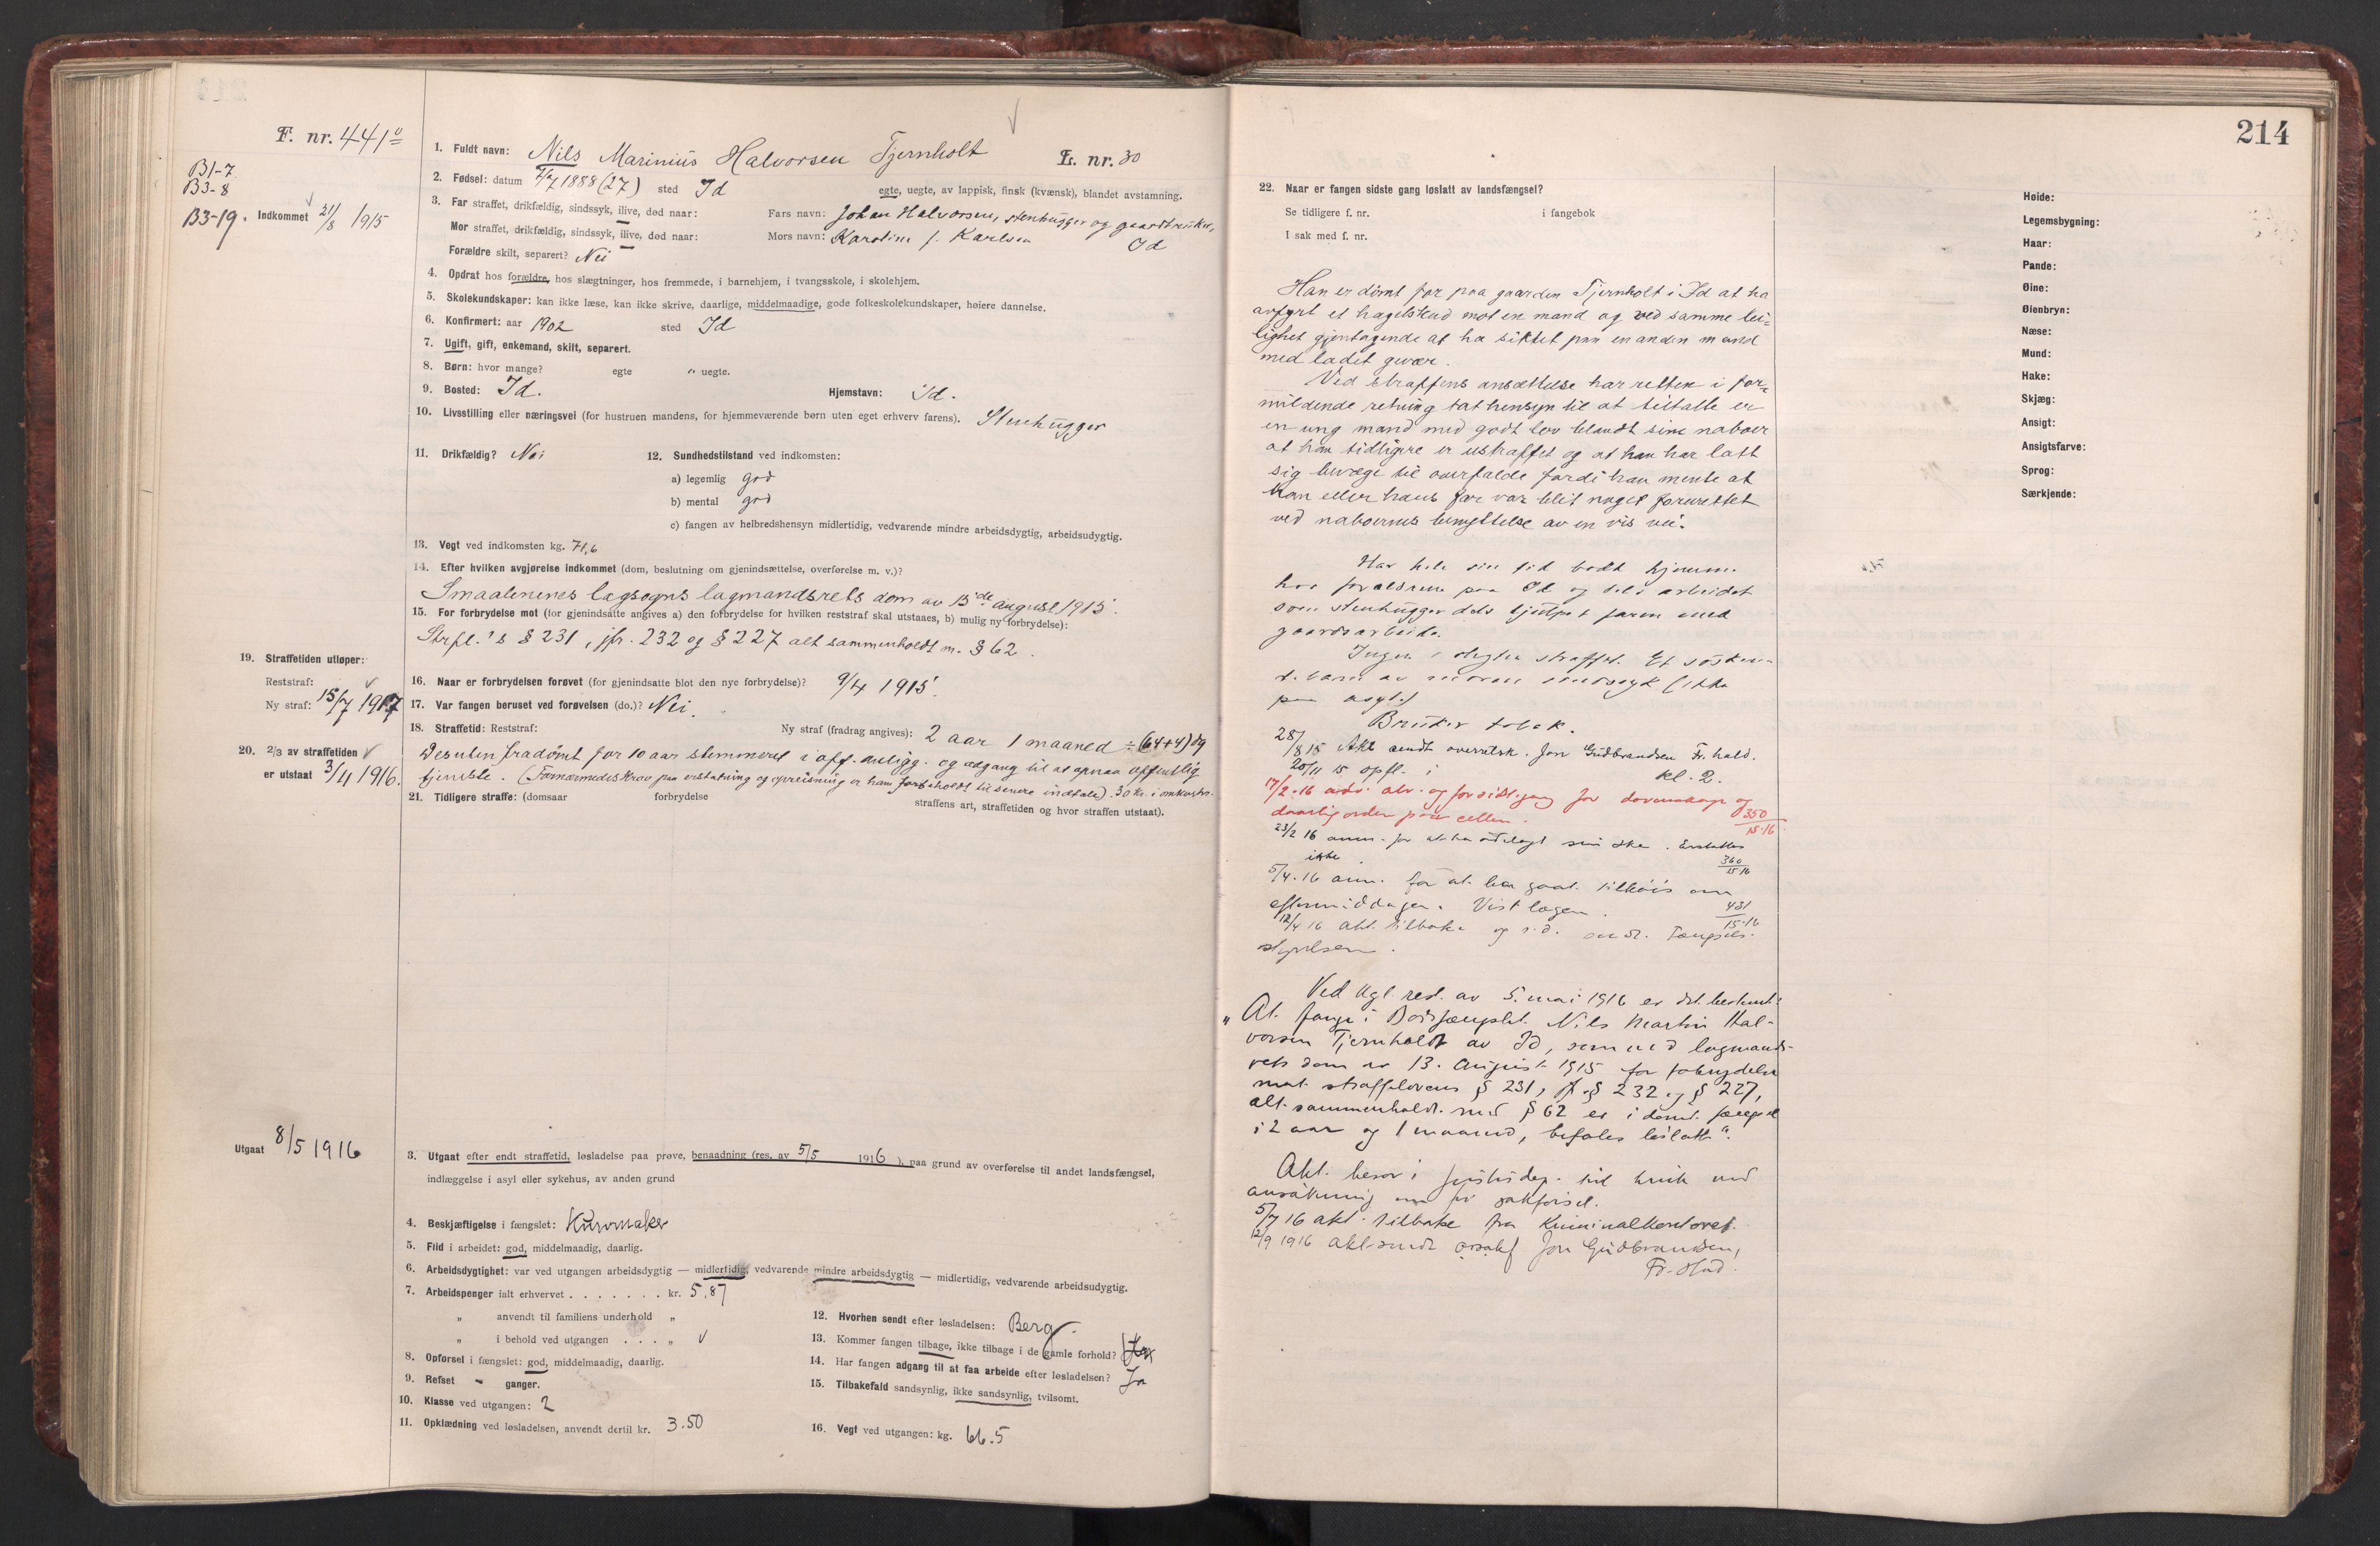 214
F. nr. 441
B1-7
B3-8
B3-19. Indkommet 21/8 1915
1. Fuldt navn: Nils Marinius Halvorsen Tjernholt L. nr. 30
2. Fødsel: datum 1888 (27) sted Id egte, uegte, av lappisk, finsk (kvænsk), blandet avstamning.
3. Far straffet, drikfældig, sindssyk, ilive, død naar: Fars navn: Johan Halvorsen, stenhugger og gaardbruker,
Mor straffet, drikfældig, sindssyk, ilive, død naar: Mors navn: Karoline f. Karlsen Id
Forældre skilt, separert? Nei
4. Opdrat hos forældre, hos slægtninger, hos fremmede, i barnehjem, i tvangsskole, i skolehjem.
5. Skolekundskaper: kan ikke læse, kan ikke skrive, daarlige, middelmaadige, gode folkeskolekundskaper, høiere dannelse.
6. Konfirmert: aar 1902 sted Id
7. Ugift, gift, enkemand, skilt, separert.
8. Børn: hvor mange? egte " uegte.
9. Bosted: Id. Hjemstavn: Id.
10. Livsstilling eller næringsvei (for hustruen mandens, for hjemmeværende børn uten eget erhverv farens). Stenhugger
11. Drikfældig? Nei 12. Sundhedstilstand ved indkomsten:
a) legemlig god
b) mental god
c) fangen av helbredshensyn midlertidig, vedvarende mindre arbeidsdygtig, arbeidsudygtig.
13. Vegt ved indkomsten kg. 71,6
14. Efter hvilken avgjørelse indkommet (dom, beslutning om gjenindsættelse, overførelse m. v.)?
Smaalenenes lagsogns lagmandsrets dom av 13de august 1915.
15. For forbrydelse mot (for gjenindsatte angives a) den forbrydelse for hvilken reststraf skal utstaaes, b) mulig ny forbrydelse):
Strfl.'s § 231, jfr. 232 og § 227 alt sammenholdt m. § 62.
19. Straffetiden utløper:
Reststraf:
Ny straf: 15/7 1917
16. Naar er forbrydelsen forøvet (for gjenindsatte blot den nye forbrydelse)? 9/4 1915.
17. Var fangen beruset ved forøvelsen (do.)? Nei.
18. Straffetid: Reststraf: Ny straf (fradrag angives): 2 aar 1 maaned ÷ (64+4) dg
20. 2/3 av straffetiden
er utstaat 3/4 1916.
Desuten fradømt for 10 aar stemmeret i off. anligg. og adgang til at opnaa offentlig
tjeneste. (Fornærmedes krav paa erstatning og opreisning er ham forbeholdt til senere indtale). 30 kr. i omkostn.
21. Tidligere straffe: (domsaar forbrydelse straffens art, straffetiden og hvor straffen utstaat).
Utgaat 8/5 1916
3. Utgaat efter endt straffetid, løsladelse paa prøve, benaadning (res. av 5/5 1916), paa grund av overførelse til andet landsfængsel,
indlæggelse i asyl eller sykehus, av anden grund
4. Beskjæftigelse i fængslet: Kurvmaker
5. Flid i arbeidet: god, middelmaadig, daarlig.
6. Arbeidsdygtighet: var ved utgangen arbeidsdygtig — midlertidig, vedvarende mindre arbeidsdygtig — midlertidig, vedvarende arbeidsudygtig.
7. Arbeidspenger ialt erhvervet . . . . . . . kr. 5,87
" anvendt til familiens underhold "
" i behold ved utgangen . . . "
8. Opførsel i fængslet: god, middelmaadig, daarlig.
9. Refset - ganger.
10. Klasse ved utgangen: 2
11. Opklædning ved løsladelsen, anvendt dertil kr. 3.50
12. Hvorhen sendt efter løsladelsen: Berg.
13. Kommer fangen tilbage, ikke tilbage i de gamle forhold?
14. Har fangen adgang til at faa arbeide efter løsladelsen? Ja
15. Tilbakefald sandsynlig, ikke sandsynlig, tvilsomt.
16. Vegt ved utgangen: kg. 66.5
22. Naar er fangen sidste gang løslatt av landsfængsel?
Se tidligere f. nr. i fangebok
I sak med f. nr.
Han er dømt for paa gaarden Tjernholt i Id at ha
avfyrt et haglskud mot en mand og ved samme lei-
lighet gjentagende at ha siktet paa en anden mand
med ladet gevær.
Ved straffens ansættelse har retten i for-
mildende retning tat hensyn til at tiltalte er
en ung mand med godt lov blandt sine naboer
at han tidligere er ustraffet og at han har latt
sig bevæge til overfaldet fordi han mente at
han eller hans far var blit noget forurettet
ved naboernes benyttelse av en vis vei.
Har hele sin tid bodt hjemme
hos forældrene paa Id og dels arbeidet
som stenhugger dels hjulpet faren med
gaardsarbeide.
Ingen i slegten straffet. Et søsken-
d. barn av moren sindssyk (ikke
paa asyl)
Bruker tobak.
28/8 15 Akt sendt overretsk. Jon Gudbrandsen Fr.hald.
20/11 15 opfl. i kl. 2.
17/2-16 adv. alv. og for sidste gang for dovenskap og
daarlig orden paa cellen. 350/15-16
23/2 16 anm. for at ha ødelagt sin ske. Erstattes
ikke 360/15 16
5/4-16 anm. for at ha gaat tilkøis om
eftermiddagen. Vist lægen. 431/15-16
12/4 16 akt. tilbake og s.d. sendt Fængsels-
styrelsen.
Ved kgl. res. av 5. mai 1916 er det bestemt:
"At fange i Botsfængslet Nils Martin Hal-
vorsen Tjernholdt av Id, som ved lagmands-
rets dom av 13. august 1915 for forbrydelse
mot straffelovens § 231, jf. § 232 og § 227,
alt sammenholdt med § 62 er idømt fængsel
i 2 aar og 1 maaned, befales løslatt".
Akt. beror i justisdep. til bruk ved
ansøkning om sakførsel.
5/7 16 akt. tilbake fra Kriminalkontoret.
12/9 1916 akt sendt orsakf Jon Gudbrandsen,
Fr.-Hald.
Høide:
Legemsbygning:
Haar:
Pande:
Øine:
Øienbryn:
Næse:
Mund:
Hake:
Skjæg:
Ansigt:
Ansigtsfarve:
Sprog:
Særkjende: